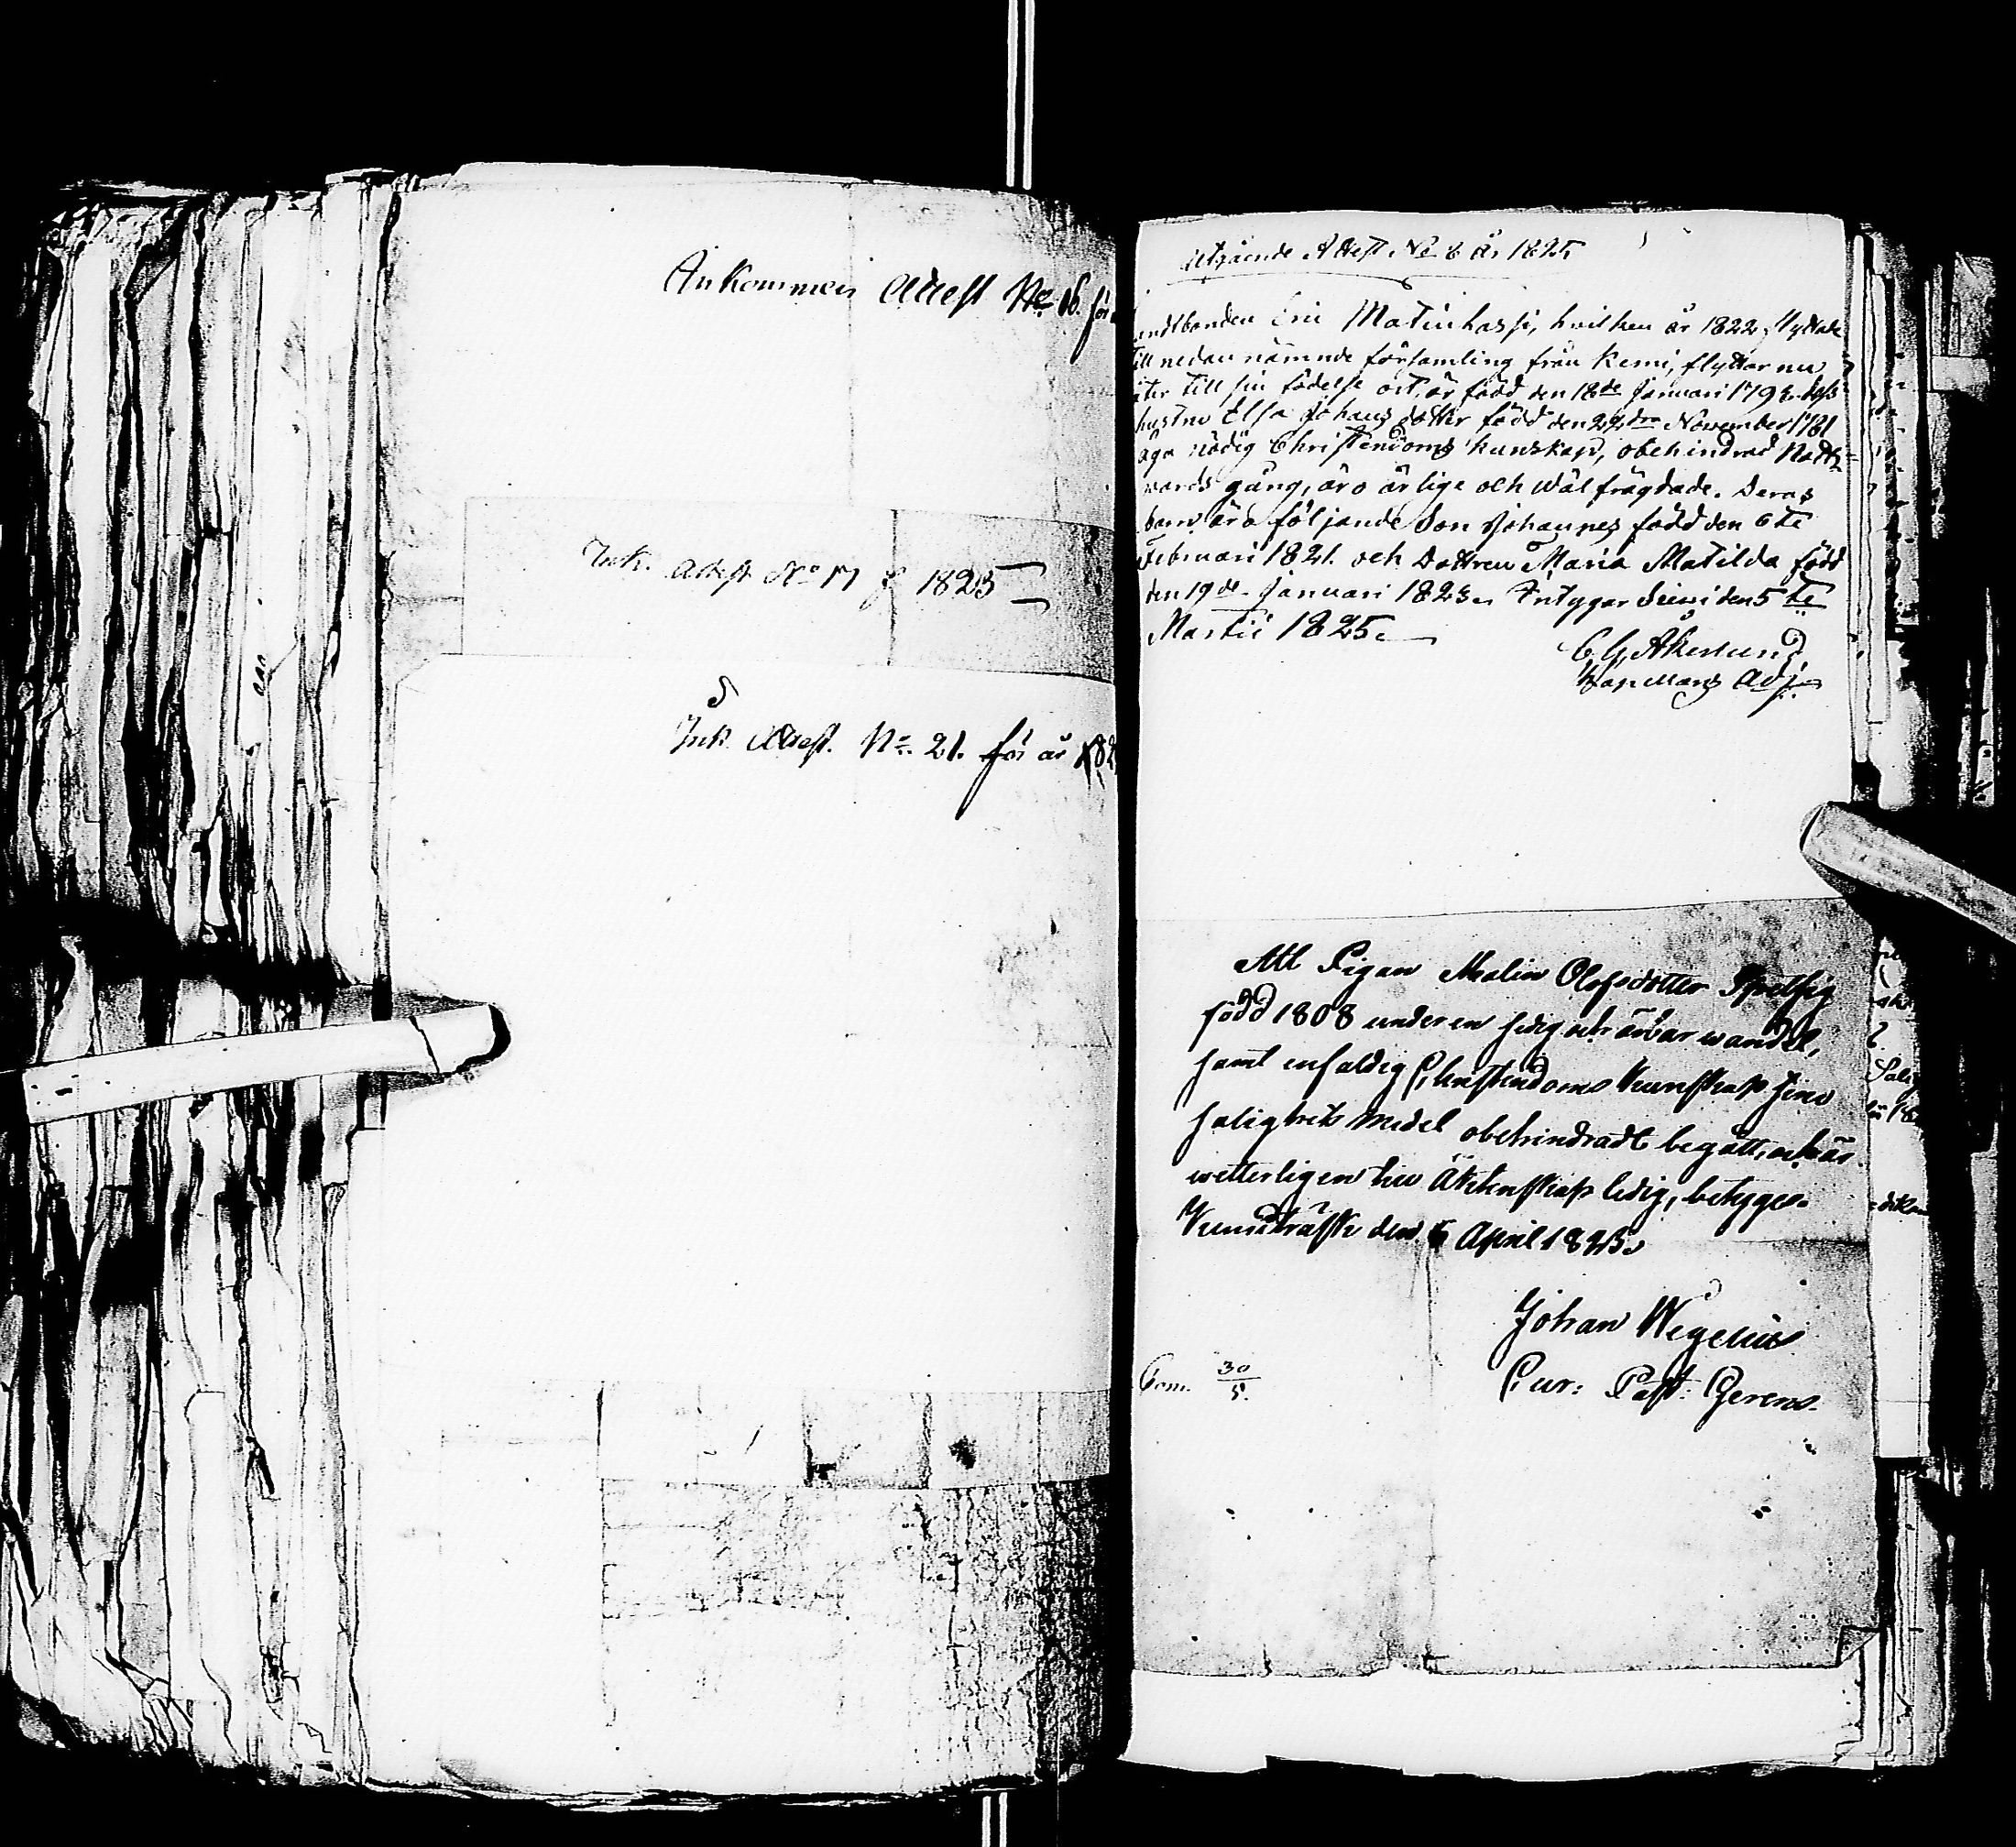 Ankommen Attest No 16. för
Ink. Attest No 17 f 1825
Ink. Attest. No. 21. för år 182
Utgående Attest No 6 år 1825
andtbonden Eric Matinhassi, hvilken år 1822 flyttade
till nedan nämnde församling från Kemi, flyttar nu
åter till sin födelse ort, är född den 18de Januari 1792. dess
hustru Elsa Johansdotter född den 22dra November 1781
äga nödig Christendoms kunskap, obehindrad Natt=
wards gång, äro ärlige och wälfrägdade. Deras
barn äro följande Son Johannes född den 6te
Februari 1821. och Dottren Maria Matilda född
den 19de Januari 1823. Intygar Simi den 5te
Martii 1825.
C. G. Åkerlund
Kapellans Adj.
Att Pigan Malin Olofsdotter
född 1808 under en sedig och ärbar wandel,
samt enfaldig Christendoms Kunskap sine
salighets medel obehindradt begått, och är
wetterligen till Äktenskap ledig, betygar.
den 6 April 1825.
Johan Wegelius
Cur: Past: Gerens.
30
5.